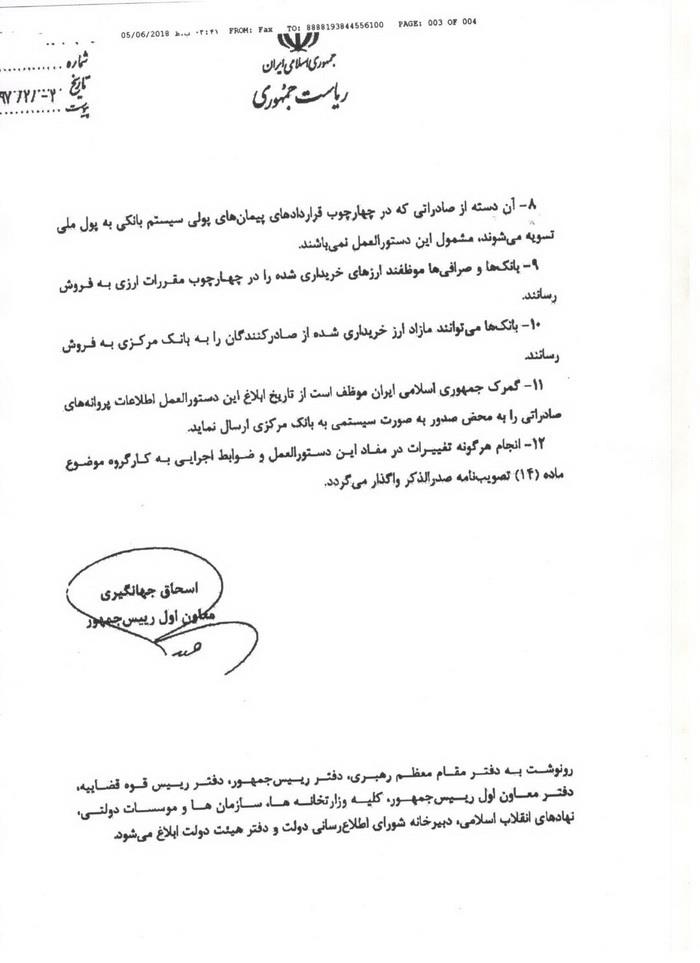 05/06/2018 ۰۳:۴۱ ب.ظ FROM: Fax TO: 8888193844556100 PAGE: 003 OF 004
جمهوری اسلامی ایران
ریاست جمهوری
شماره
تاریخ
پیوست
۸- آن دسته از صادراتی که در چهارچوب قراردادهای پیمان‌های پولی سیستم بانکی به پول ملی
تسویه می‌شوند، مشمول این دستورالعمل نمی‌باشند.
۹- بانک‌ها و صرافی‌ها موظفند ارزهای خریداری شده را در چهارچوب مقررات ارزی به فروش
رسانند.
۱۰- بانک‌ها می‌توانند مازاد ارز خریداری شده از صادرکنندگان را به بانک مرکزی به فروش
رسانند.
۱۱- گمرک جمهوری اسلامی ایران موظف است از تاریخ ابلاغ این دستورالعمل اطلاعات پروانه‌های
صادراتی را به محض صدور به صورت سیستمی به بانک مرکزی ارسال نماید.
۱۲- انجام هرگونه تغییرات در مفاد این دستورالعمل و ضوابط اجرایی به کارگروه موضوع
ماده (۱۴) تصویب‌نامه صدرالذکر واگذار می‌گردد.
اسحاق جهانگیری
معاون اول رییس‌جمهور
رونوشت به دفتر مقام معظم رهبری، دفتر رییس‌جمهور، دفتر رییس قوه قضاییه،
دفتر معاون اول رییس‌جمهور، کلیه وزارتخانه ها، سازمان ها و موسسات دولتی،
نهادهای انقلاب اسلامی، دبیرخانه شورای اطلاع‌رسانی دولت و دفتر هیئت دولت ابلاغ می‌شود.